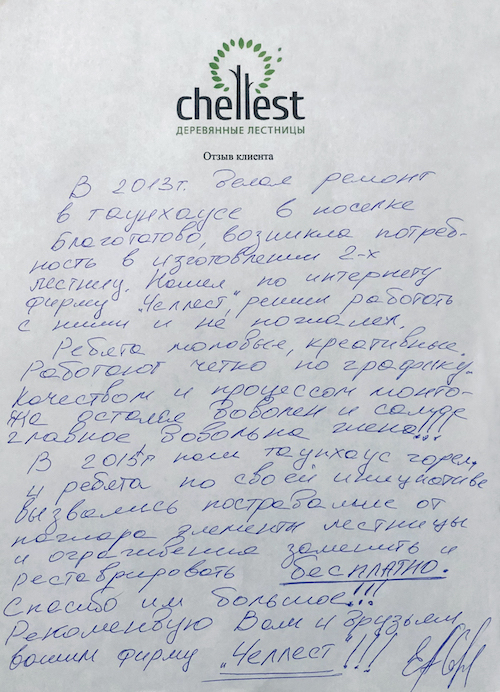 chellest
ДЕРЕВЯННЫЕ ЛЕСТНИЦЫ
Отзыв клиента
В 2013г. делая ремонт
в таунхаусе в поселке
Благотатово, возникла потреб-
ность в изготовлении 2-х
лестниц. Нашел по интернету
фирму "Челлест", решил работать
с ними и не пожалел.
Ребята молодые, креативные.
Работают четко по графику.
Качеством и процессом монта-
жа остался доволен и самое
главное довольна жена!!!
В 2015г наш таунхаус горел,
и ребята по своей инициативе
вызвались пострадавшие от
пожара элементы лестницы
и ограждения заменить и
реставрировать БЕСПЛАТНО.
Спасибо им большое!!!
Рекомендую Вам и друзьям
вашим фирму "Челлест"!!!